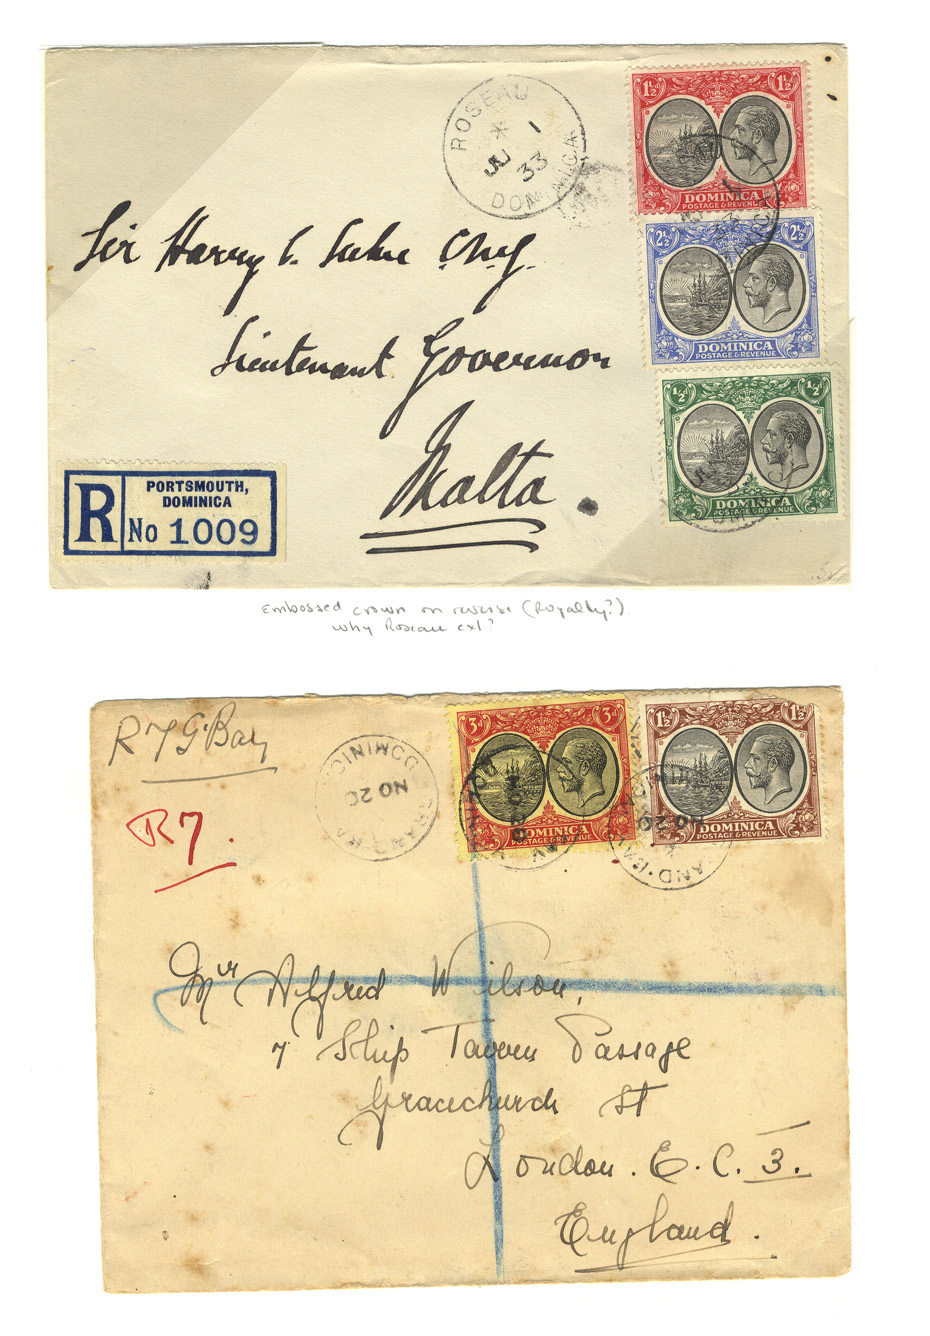 ROSEAU
* 1
JU
33
DOMINICA
1½ 1½
DOMINICA
POSTAGE & REVENUE
2½ 2½
DOMINICA
POSTAGE & REVENUE
½ ½
DOMINICA
POSTAGE & REVENUE
Sir Harry C. Luke C.M.G.
Lieutenant Governor
Malta.
R
PORTSMOUTH,
DOMINICA
No 1009
Embossed crown on reverse (Royalty?)
why Roseau ext?
R 7 G. Bay
R 7.
DOMINICA
NO 20
3d 3d
DOMINICA
POSTAGE & REVENUE
1½ 1½
DOMINICA
POSTAGE & REVENUE
NO 20
Mr Alfred Wilson,
7 Ship Tavern Passage
Gracechurch St
London. E. C. 3.
England.